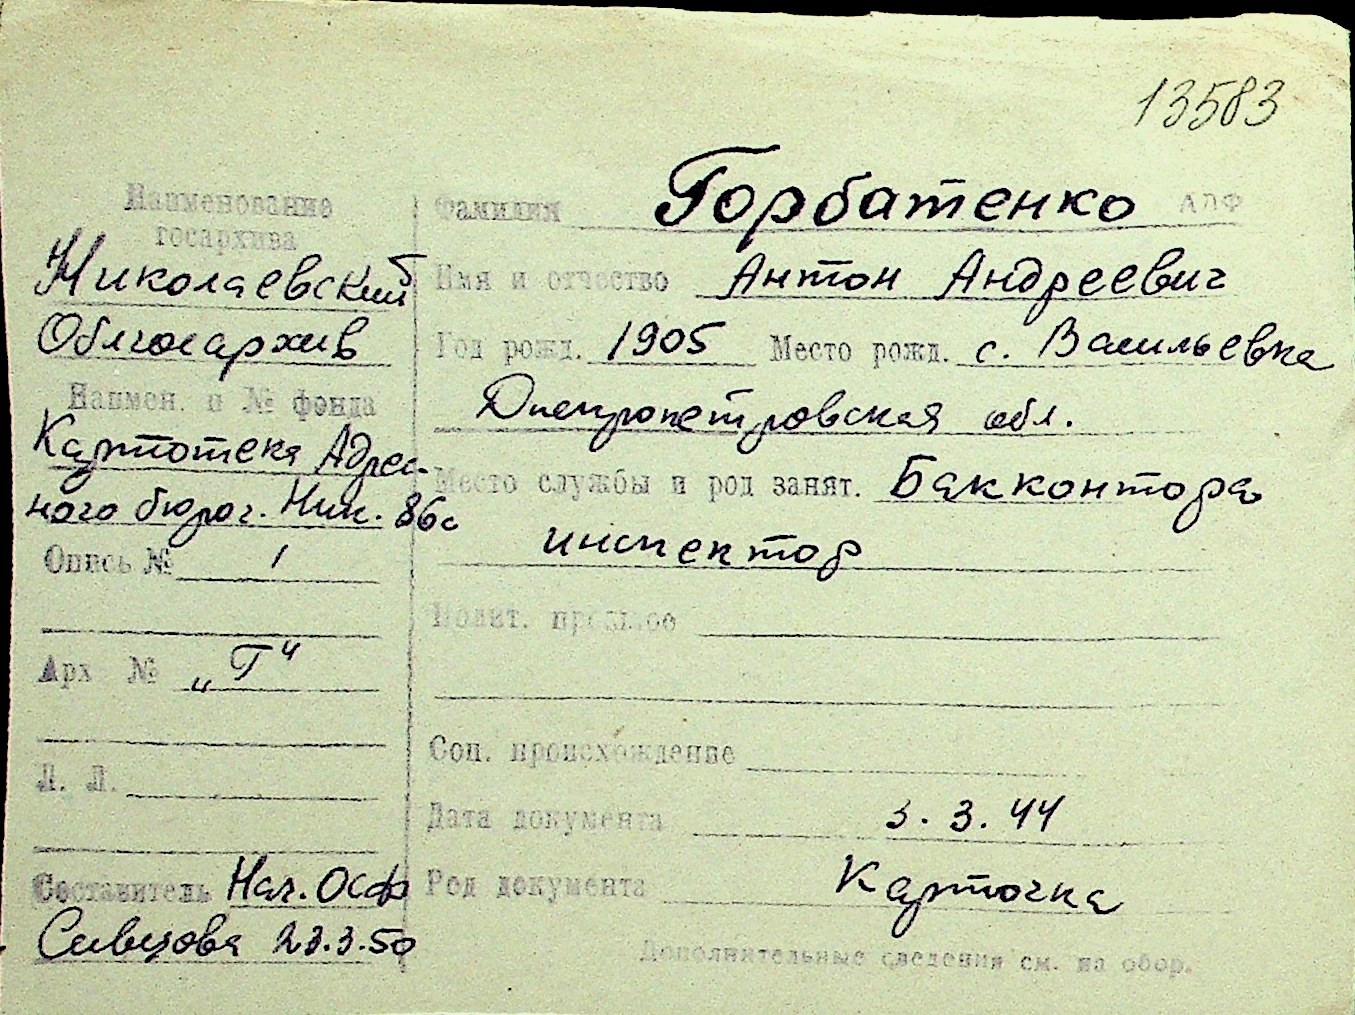 13583
Наименование
госархива
Николаевский
Облгосархив
Наимен. и № фонда
Картотека Адрес-
ного бюро г. Ник. 86с
Опись № 1
Арх № „Г“
Л. Л.
Составитель Нач. ОСФ
Сивцова 23.3.50
Фамилия Горбатенко АПФ
Имя и отчество Антон Андреевич
Год рожд. 1905 Место рожд. с. Васильевка
Днепропетровская обл.
Место службы и род занят. Бакконтора
инспектор
Полит. прошлое
Соц. происхождение
Дата документа 3.3.44
Род документа Карточка
Дополнительные сведения см. на обор.